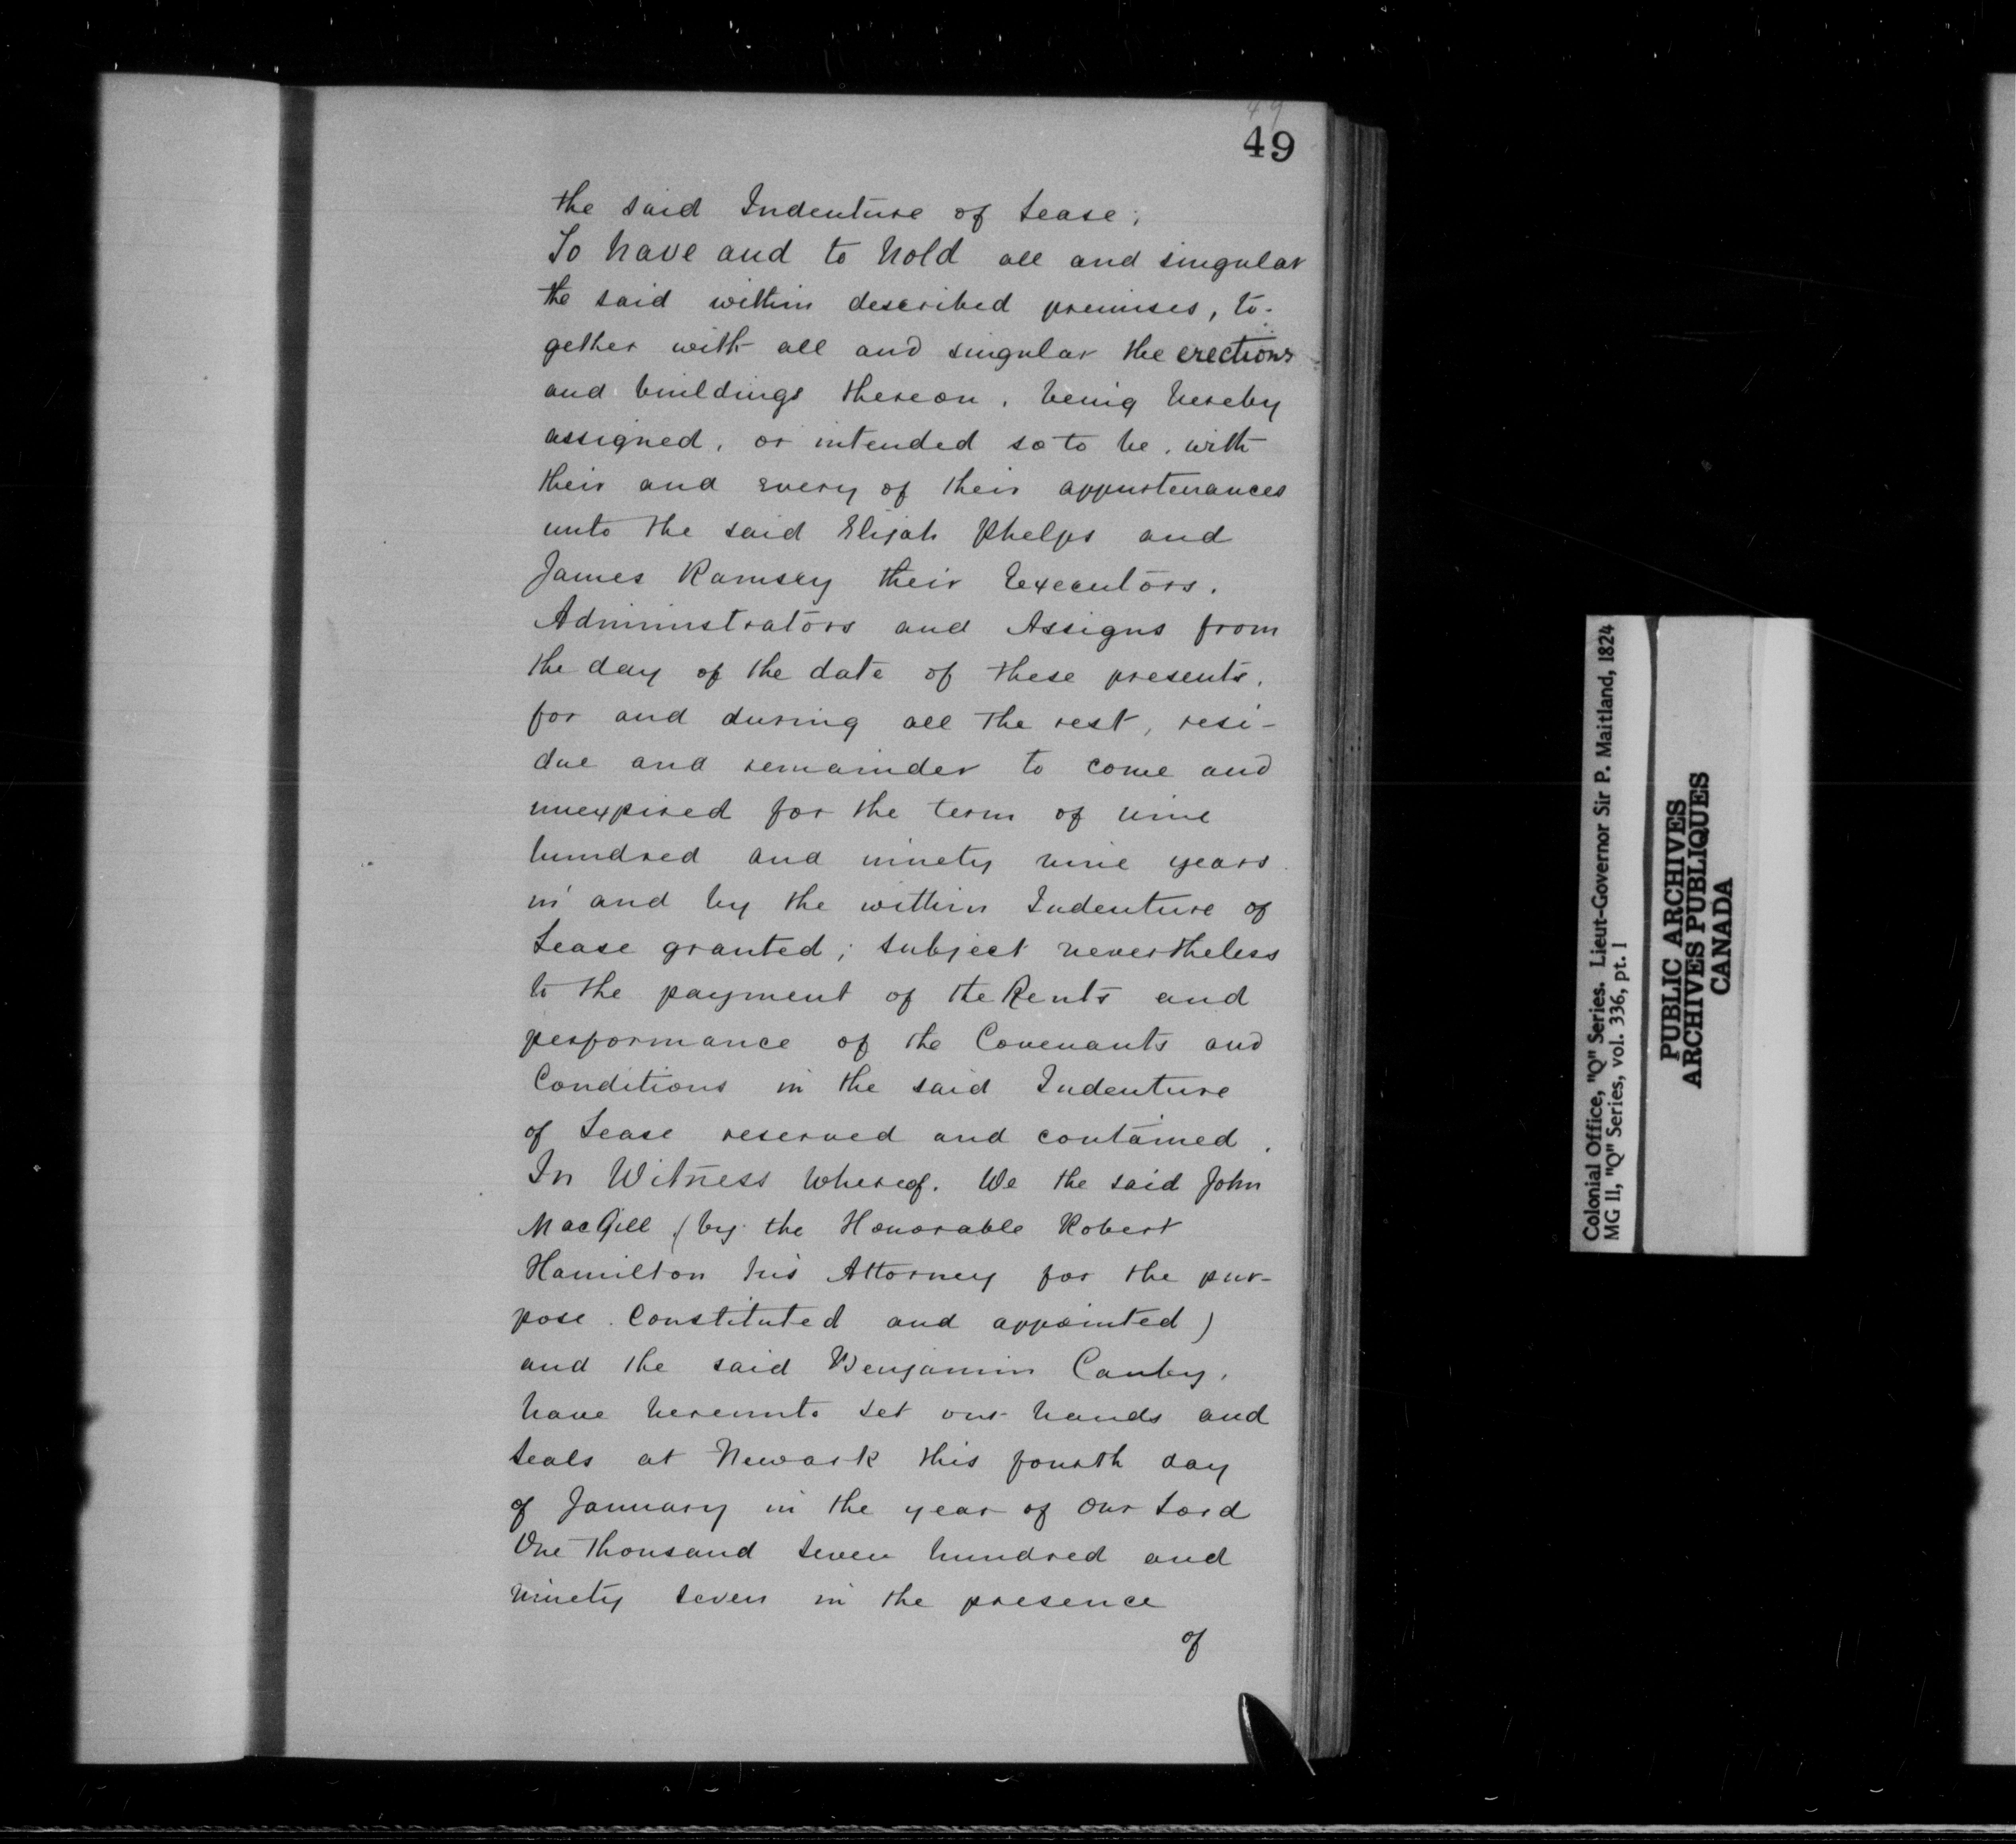 49
49
the said Indenture of Lease;
To have and to hold all and singular
the said within described premises, to-
gether with all and singular the erections
and buildings thereon, being hereby
assigned, or intended so to be, with
their and every of their appurtenances
unto the said Elijah Phelps and
James Ramsey their Executors,
Administrators and Assigns from
the day of the date of these presents,
for and during all the rest, resi-
due and remainder to come and
unexpired for the term of nine
hundred and ninety nine years
in and by the within Indenture of
Lease granted; subject nevertheless
to the payment of the Rents and
performance of the Covenants and
Conditions in the said Indenture
of Lease reserved and contained.
In Witness whereof. We the said John
MacGill (by the Honorable Robert
Hamilton his Attorney for the pur-
pose Constituted and appointed)
and the said Benjamin Canby,
have hereunto set our hands and
seals at Newark this fourth day
of January in the year of Our Lord
One Thousand seven hundred and
ninety seven in the presence
of
Colonial Office, "Q" Series. Lieut-Governor Sir P. Maitland, 1824
MG 11, "Q" Series, vol. 336, pt. 1
PUBLIC ARCHIVES
ARCHIVES PUBLIQUES
CANADA